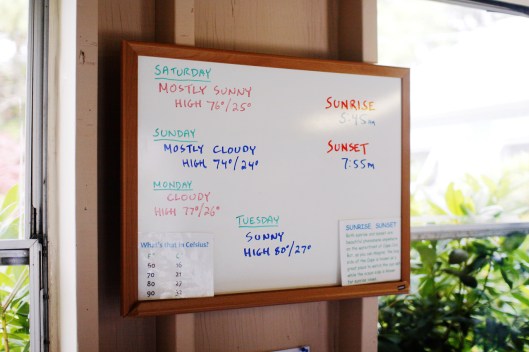 SATURDAY
MOSTLY SUNNY
HIGH 76°/25°
SUNDAY
MOSTLY CLOUDY
HIGH 74°/24°
MONDAY
CLOUDY
HIGH 77°/26°
TUESDAY
SUNNY
HIGH 80°/27°
SUNRISE
5:45am
SUNSET
7:55pm
What's that in Celsius?
F° C°
60 16
70 21
80 27
90 32
SUNRISE SUNSET